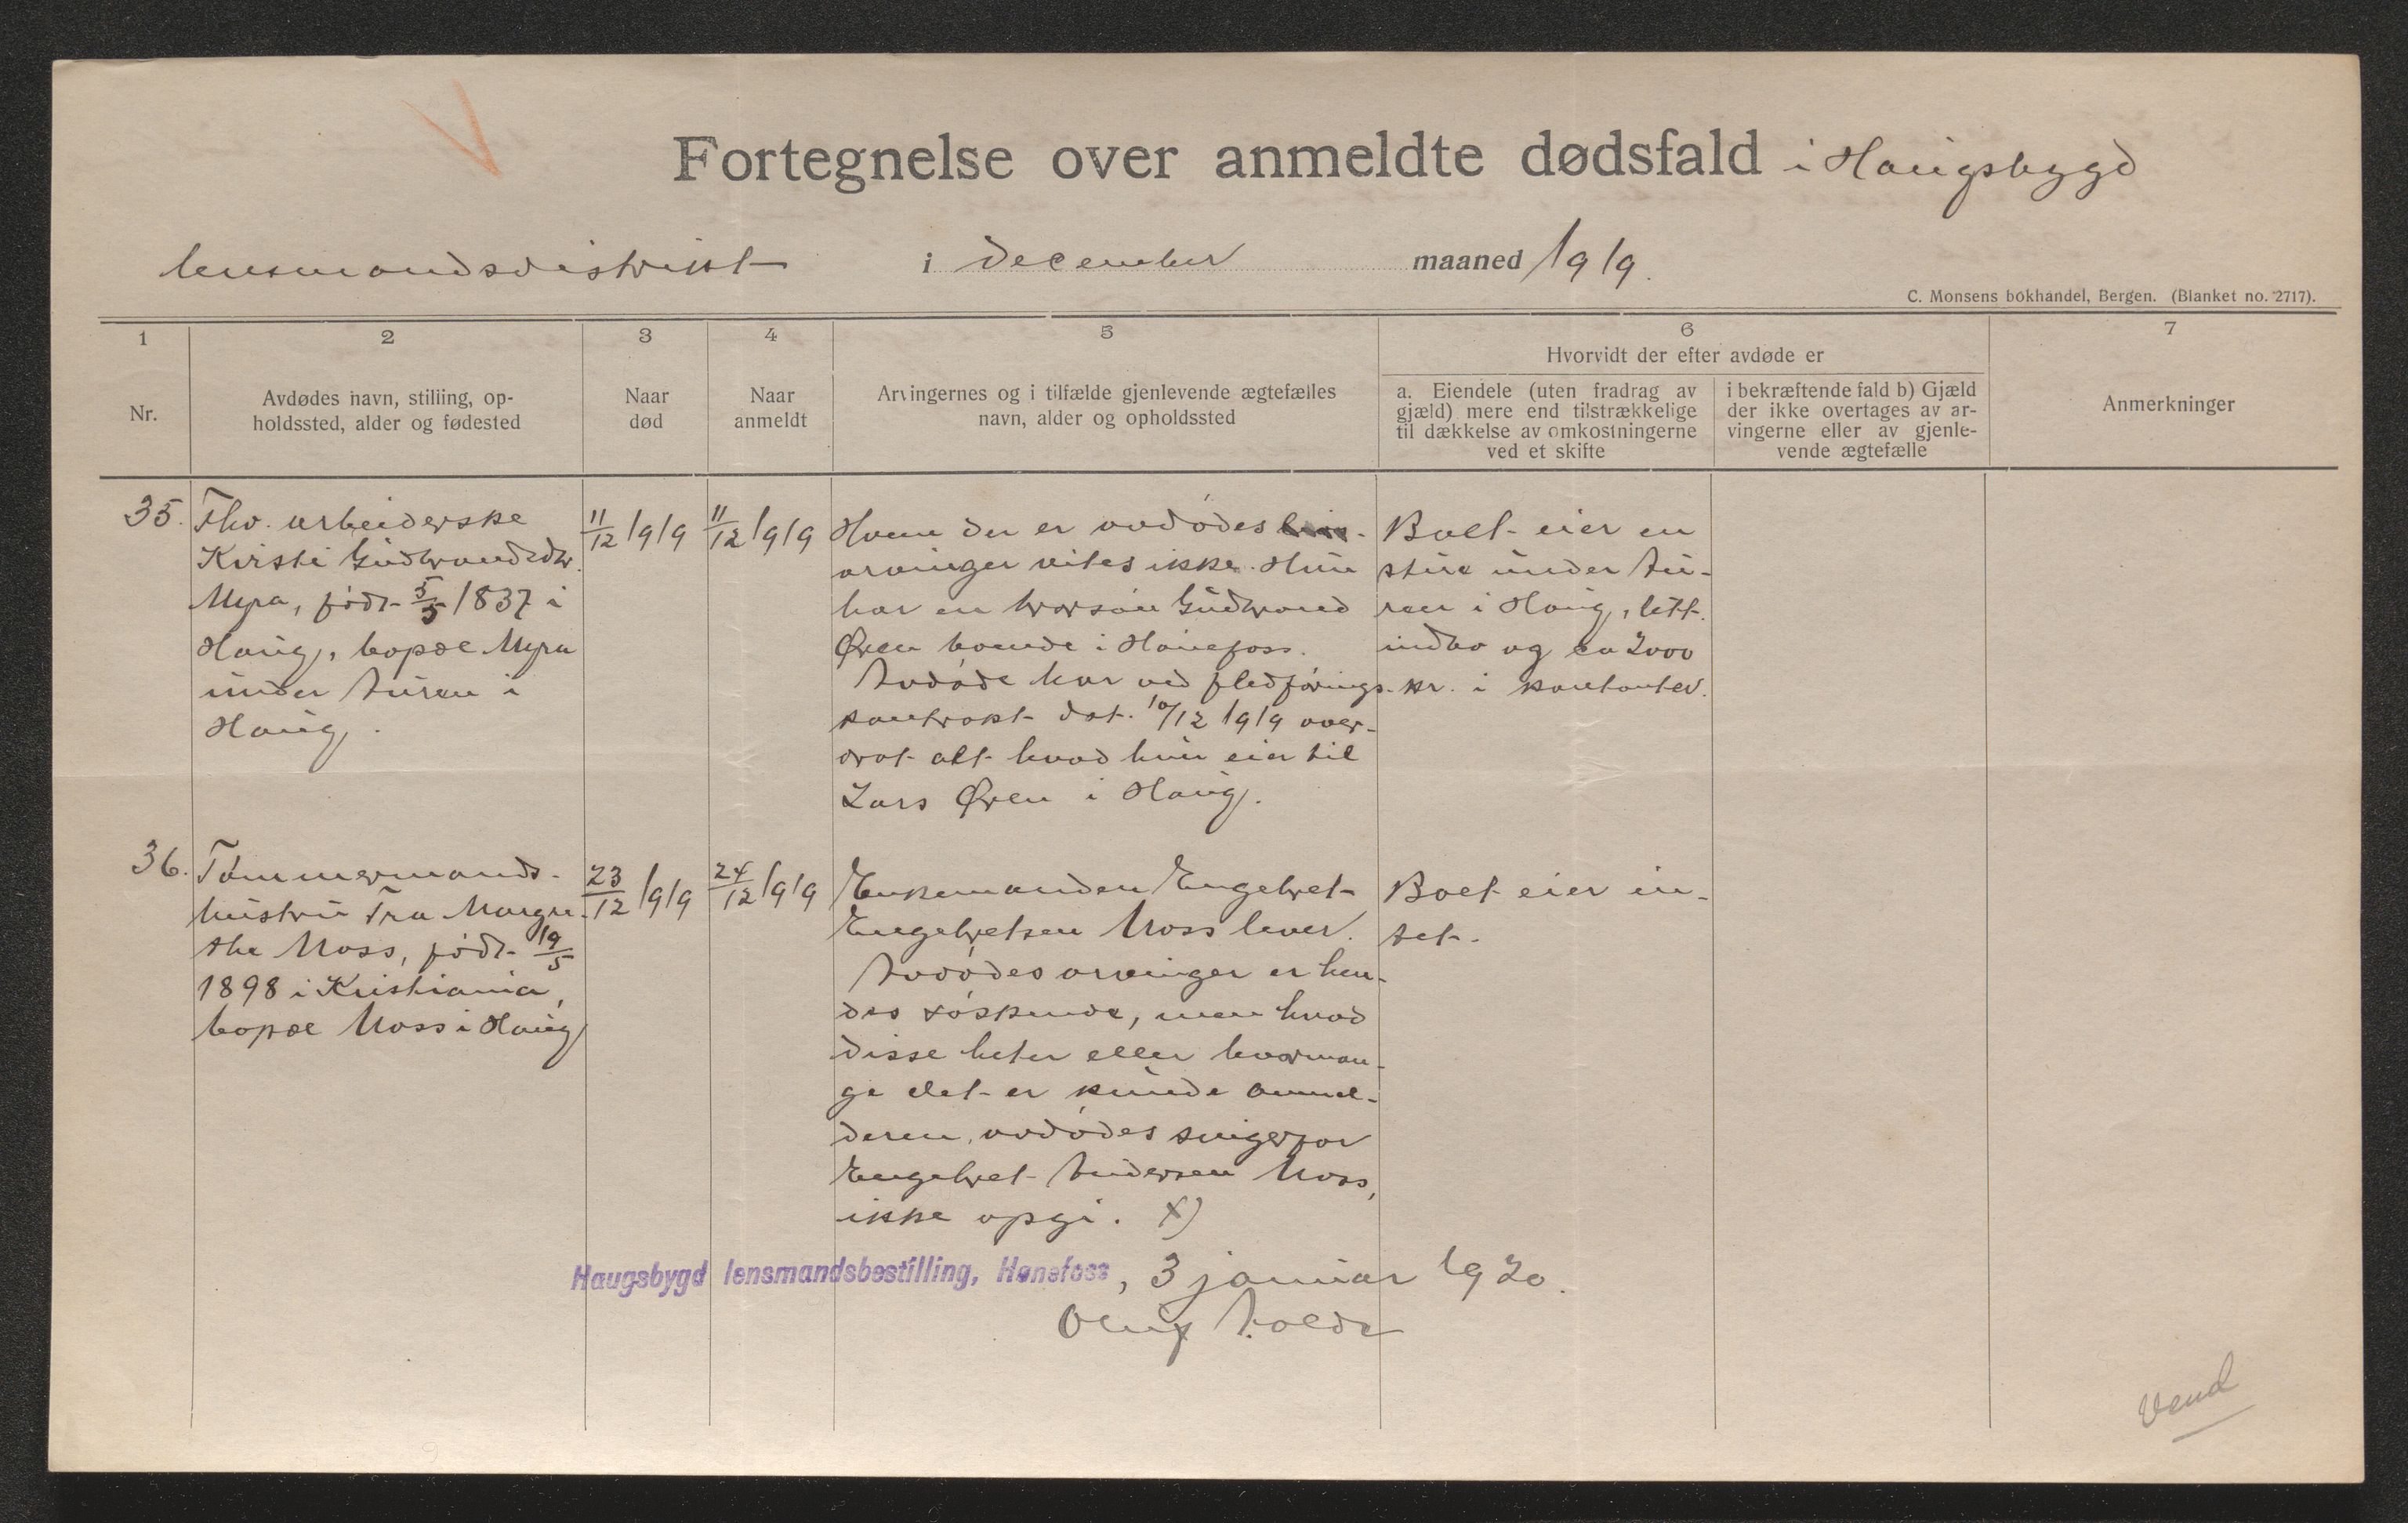 Fortegnelse over anmeldte dødsfald i Haugsbygd
lensmandsdistrikt i december maaned 1919.
C. Monsens bokhandel, Bergen. (Blanket no. 2717).
1
2
3
4
5
6
7
Nr.
Avdødes navn, stilling, op-
holdssted, alder og fødested
Naar
død
Naar
anmeldt
Arvingernes og i tilfælde gjenlevende ægtefælles
navn, alder og opholdssted
Hvorvidt der efter avdøde er
a. Eiendele (uten fradrag av
gjæld) mere end tilstrækkelige
til dækkelse av omkostningerne
ved et skifte
i bekræftende fald b) Gjæld
der ikke overtages av ar-
vingerne eller av gjenle-
vende ægtefælle
Anmerkninger
35.
Fhv. arbeiderske
Kirsti Gudbrandsdtr.
Myra, født 5/5 1837 i
Haug, bopæl Myra
under Turen i
Haug.
11/12 1919
11/12 1919
Hvem der er avdødes
arvinger vites ikke. Hun
har en brorsøn Gudbrand
Øren boende i Hønefoss.
Avdøde har ved fledførings-
kontrakt dat. 10/12 1919 over-
drat alt hvad hun eier til
Lars Øren i Haug.
Boet eier en
stue under Tu-
ren i Haug, litt
indbo og ca 2000
kr. i kontanter.
36.
Tømmermands-
hustru Fra Margre-
the Moss, født 19/5
1898 i Kristiania,
bopæl Moss i Haug
23/12 1919
24/12 1919
Enkemanden Engebret
Engebretsen Moss lever.
Avdødes arvinger er hen-
des søskende, men hvad
disse heter eller hvorman-
ge det er kunde anmel-
deren, avdødes svigerfar
Engebret Andersen Moss,
ikke opgi. X)
Boet eier in-
tet.
Haugsbygd lensmandsbestilling, Hønefoss, 3 januar 1920.
Vend